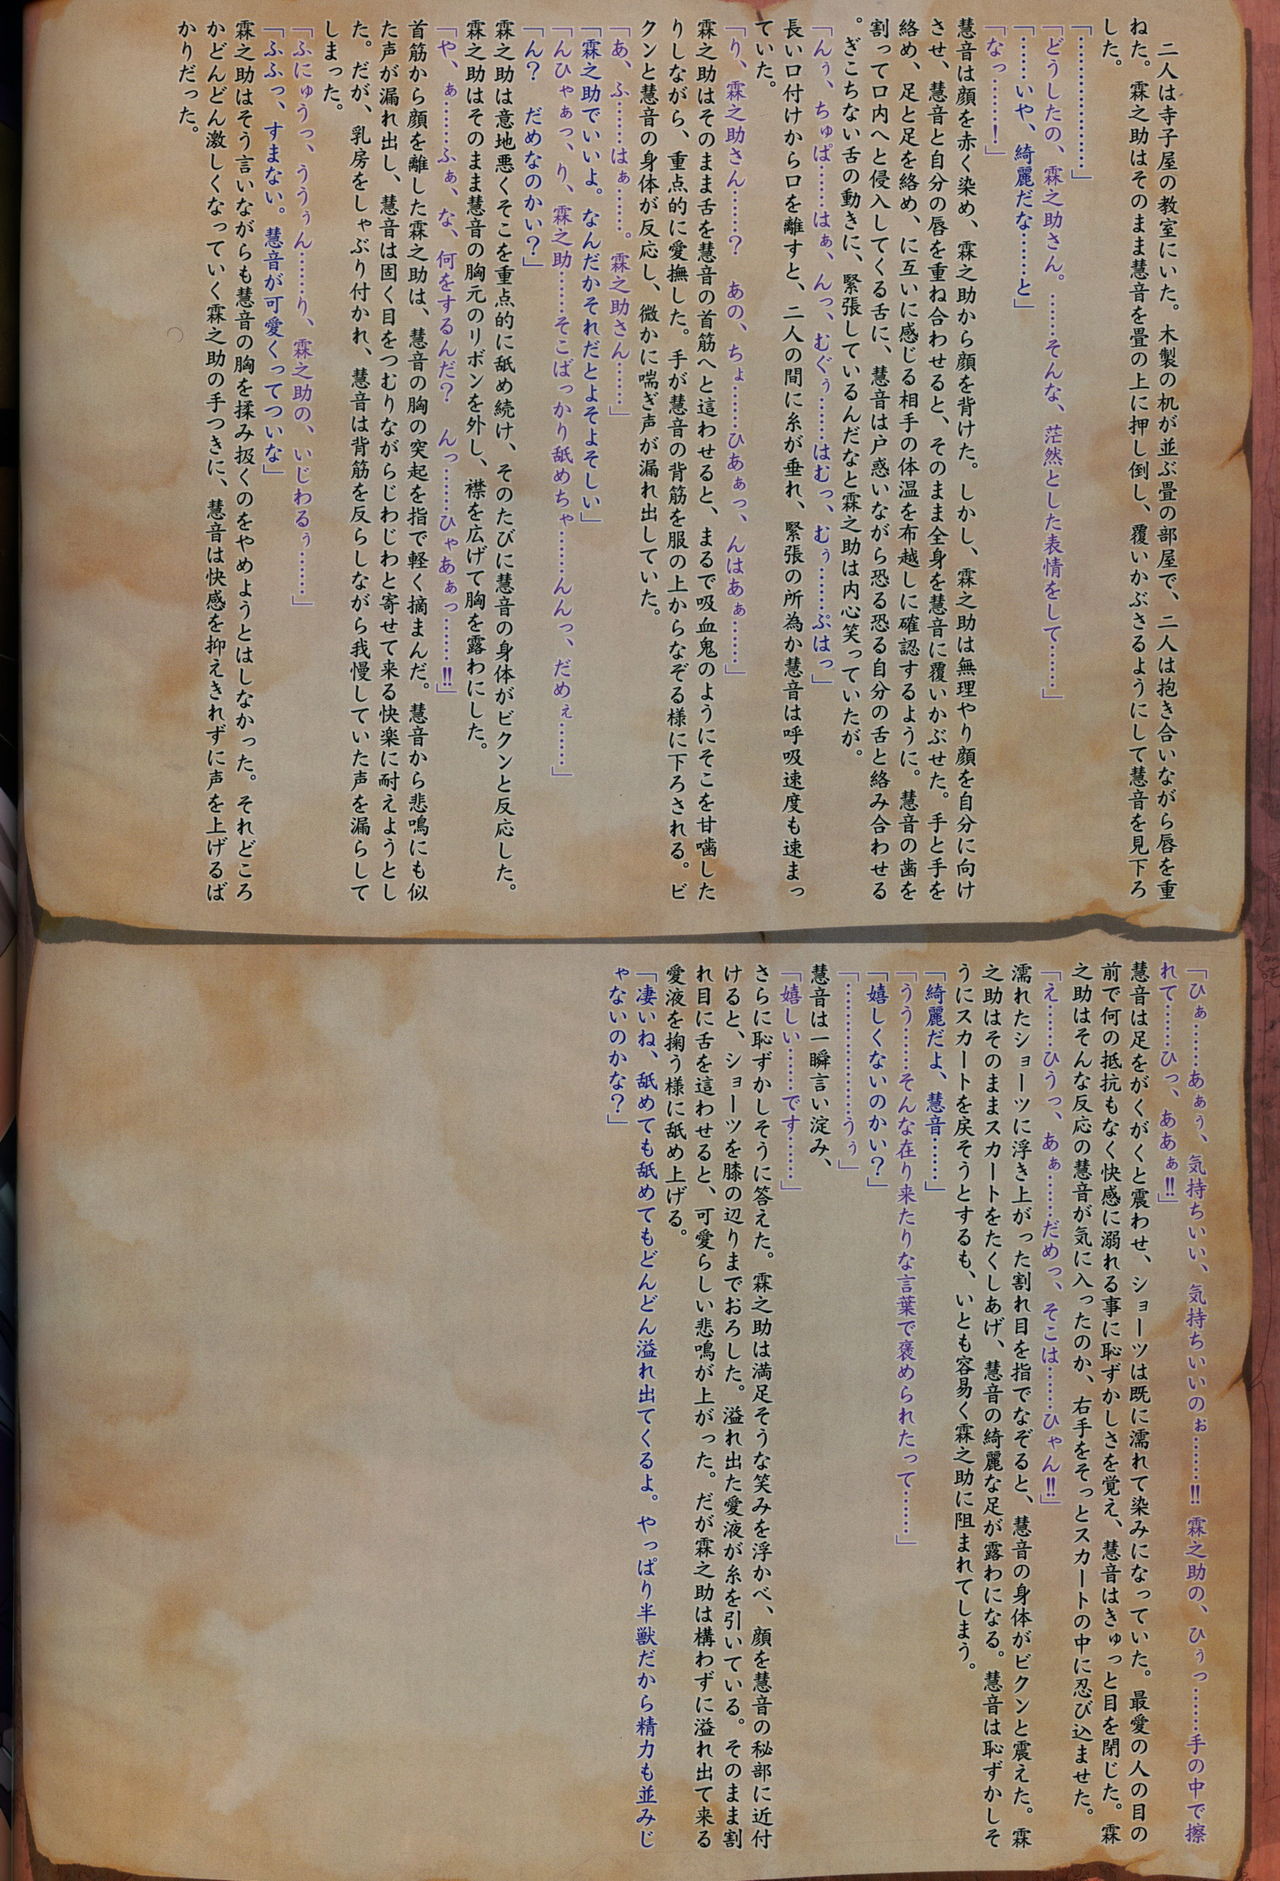 二人は寺子屋の教室にいた。木製の机が並ぶ畳の部屋で、二人は抱き合いながら唇を重
ねた。霖之助はそのまま慧音を畳の上に押し倒し、覆いかぶさるようにして慧音を見下ろ
した。
「………………」
「どうしたの、霖之助さん。……そんな、茫然とした表情をして……」
「……いや、綺麗だな……と」
「なっ……！」
慧音は顔を赤く染め、霖之助から顔を背けた。しかし、霖之助は無理やり顔を自分に向け
させ、慧音と自分の唇を重ね合わせると、そのまま全身を慧音に覆いかぶせた。手と手を
絡め、足と足を絡め、に互いに感じる相手の体温を布越しに確認するように。慧音の歯を
割って口内へと侵入してくる舌に、慧音は戸惑いながら恐る恐る自分の舌と絡み合わせる
。ぎこちない舌の動きに、緊張しているんだなと霖之助は内心笑っていたが。
「んぅ、ちゅぱ……はぁ、んっ、むぐぅ……はむっ、むぅ……ぷはっ」
長い口付けから口を離すと、二人の間に糸が垂れ、緊張の所為か慧音は呼吸速度も速まっ
ていた。
「り、霖之助さん……？　あの、ちょ……ひあぁっ、んはあぁ……」
霖之助はそのまま舌を慧音の首筋へと這わせると、まるで吸血鬼のようにそこを甘噛した
りしながら、重点的に愛撫した。手が慧音の背筋を服の上からなぞる様に下ろされる。ビ
クンと慧音の身体が反応し、微かに喘ぎ声が漏れ出していた。
「あ、ふ……はぁ……。霖之助さん……」
「霖之助でいいよ。なんだかそれだとよそよそしい」
「んひゃぁっ、り、霖之助……そこばっかり舐めちゃ……んんっ、だめぇ……」
「ん？　だめなのかい？」
霖之助は意地悪くそこを重点的に舐め続け、そのたびに慧音の身体がビクンと反応した。
霖之助はそのまま慧音の胸元のリボンを外し、襟を広げて胸を露わにした。
「や、ぁ……ふぁ、な、何をするんだ？　んっ……ひゃあぁっ……!!」
首筋から顔を離した霖之助は、慧音の胸の突起を指で軽く摘まんだ。慧音から悲鳴にも似
た声が漏れ出し、慧音は固く目をつむりながらじわじわと寄せて来る快楽に耐えようとし
た。だが、乳房をしゃぶり付かれ、慧音は背筋を反らしながら我慢していた声を漏らして
しまった。
「ふにゅうっ、ううぅん……り、霖之助の、いじわるぅ……」
「ふふっ、すまない。慧音が可愛くってついな」
霖之助はそう言いながらも慧音の胸を揉み扱くのをやめようとはしなかった。それどころ
かどんどん激しくなっていく霖之助の手つきに、慧音は快感を抑えきれずに声を上げるば
かりだった。
「ひぁ……あぁぅ、気持ちいい、気持ちいいのぉ……!!　霖之助の、ひぅっ……手の中で擦
れて……ひっ、ああぁ!!」
慧音は足をがくがくと震わせ、ショーツは既に濡れて染みになっていた。最愛の人の目の
前で何の抵抗もなく快感に溺れる事に恥ずかしさを覚え、慧音はきゅっと目を閉じた。霖
之助はそんな反応の慧音が気に入ったのか、右手をそっとスカートの中に忍び込ませた。
「え……ひうっ、あぁ……だめっ、そこは……ひゃん!!」
濡れたショーツに浮き上がった割れ目を指でなぞると、慧音の身体がビクンと震えた。霖
之助はそのままスカートをたくしあげ、慧音の綺麗な足が露わになる。慧音は恥ずかしそ
うにスカートを戻そうとするも、いとも容易く霖之助に阻まれてしまう。
「綺麗だよ、慧音……」
「うう……そんな在り来たりな言葉で褒められたって……」
「嬉しくないのかい？」
「………………うぅ」
慧音は一瞬言い淀み、
「嬉しい……です……」
さらに恥ずかしそうに答えた。霖之助は満足そうな笑みを浮かべ、顔を慧音の秘部に近付
けると、ショーツを膝の辺りまでおろした。溢れ出た愛液が糸を引いている。そのまま割
れ目に舌を這わせると、可愛らしい悲鳴が上がった。だが霖之助は構わずに溢れ出て来る
愛液を掬う様に舐め上げる。
「凄いね、舐めても舐めてもどんどん溢れ出てくるよ。やっぱり半獣だから精力も並みじ
ゃないのかな？」